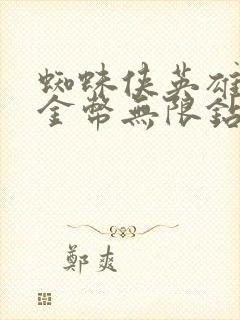 蜘蛛俠英雄
金幣無限鉆
鄭爽